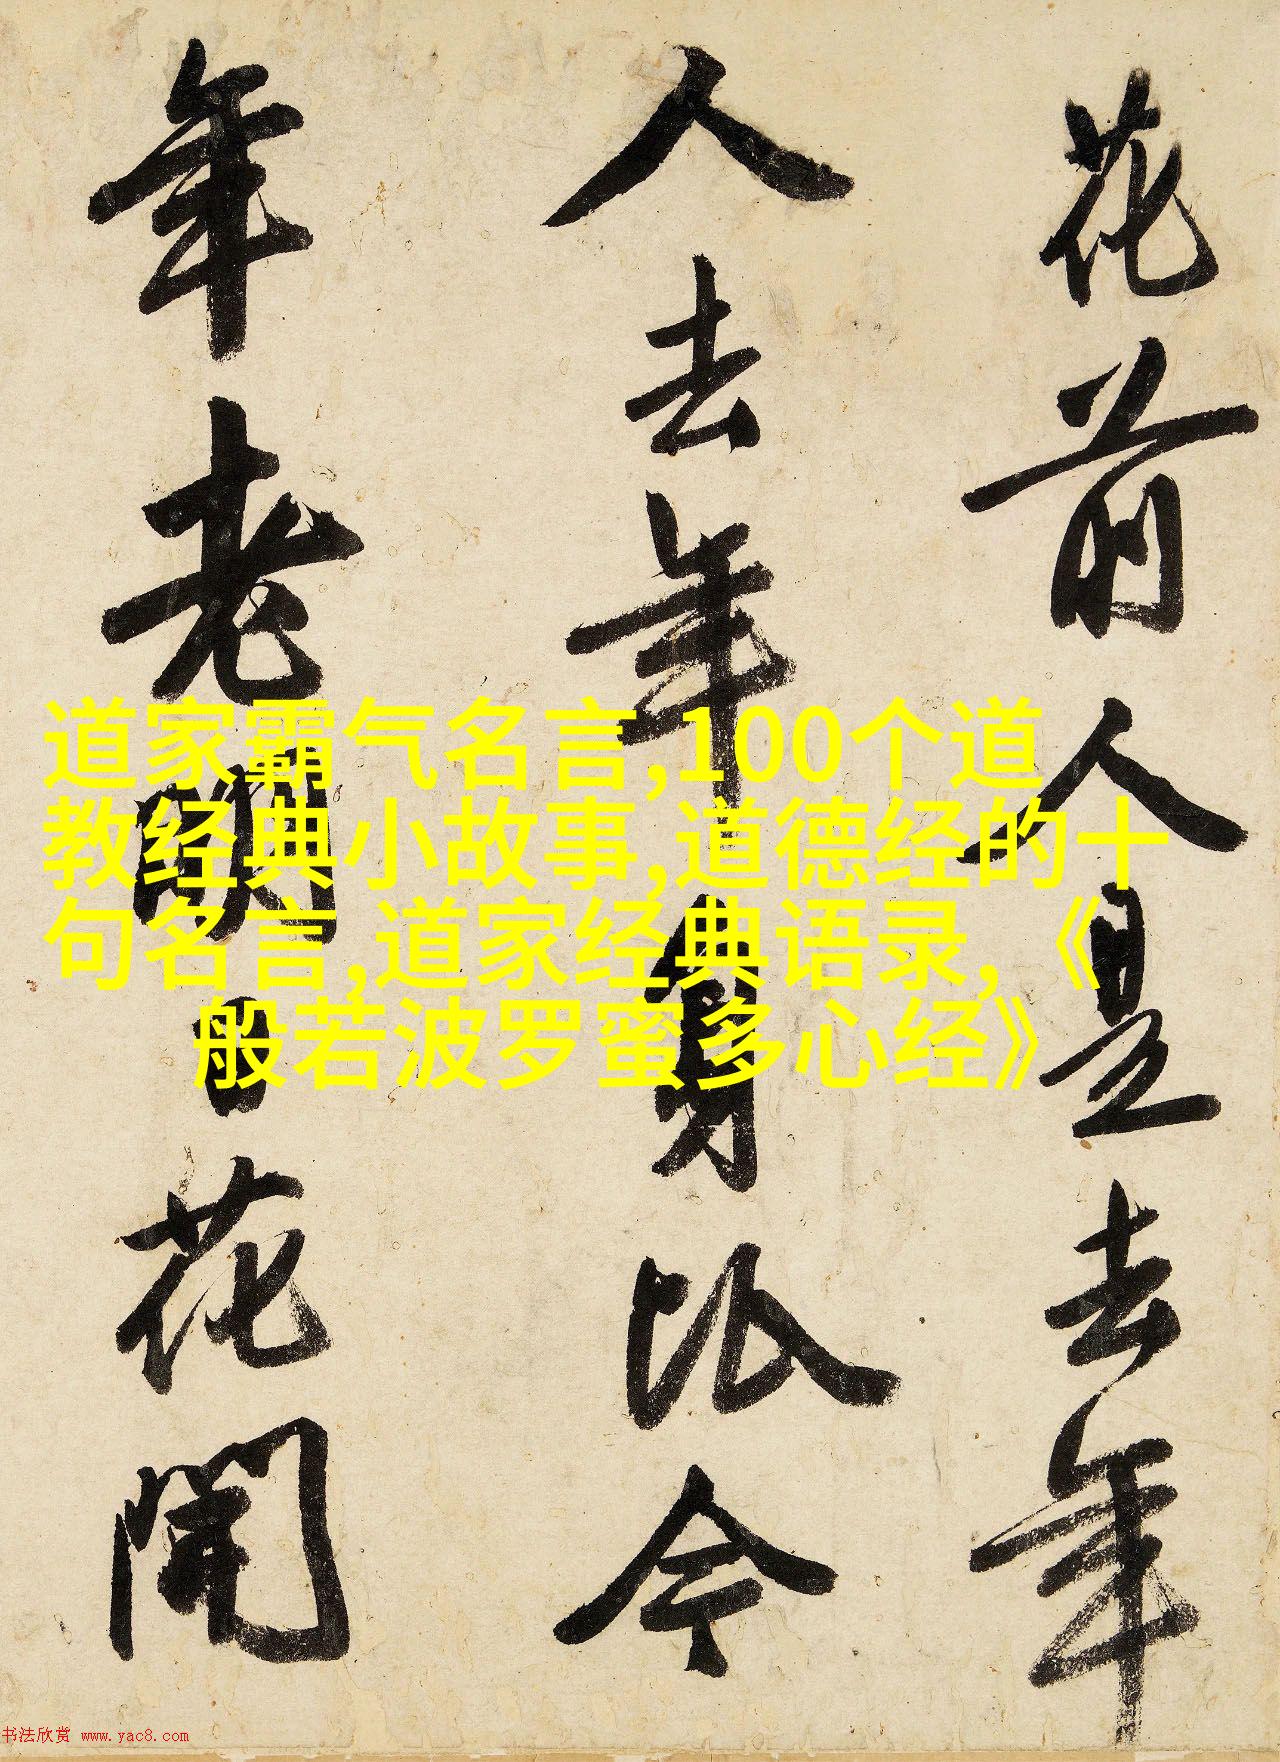 花前人是去年
人去年身比今
年老日花開
道家霸气名言,100个道
教经典小故事,道德经的十
句名言,道家经典语录,《
般若波罗蜜多心经》
书法欣赏 www.yac8.com